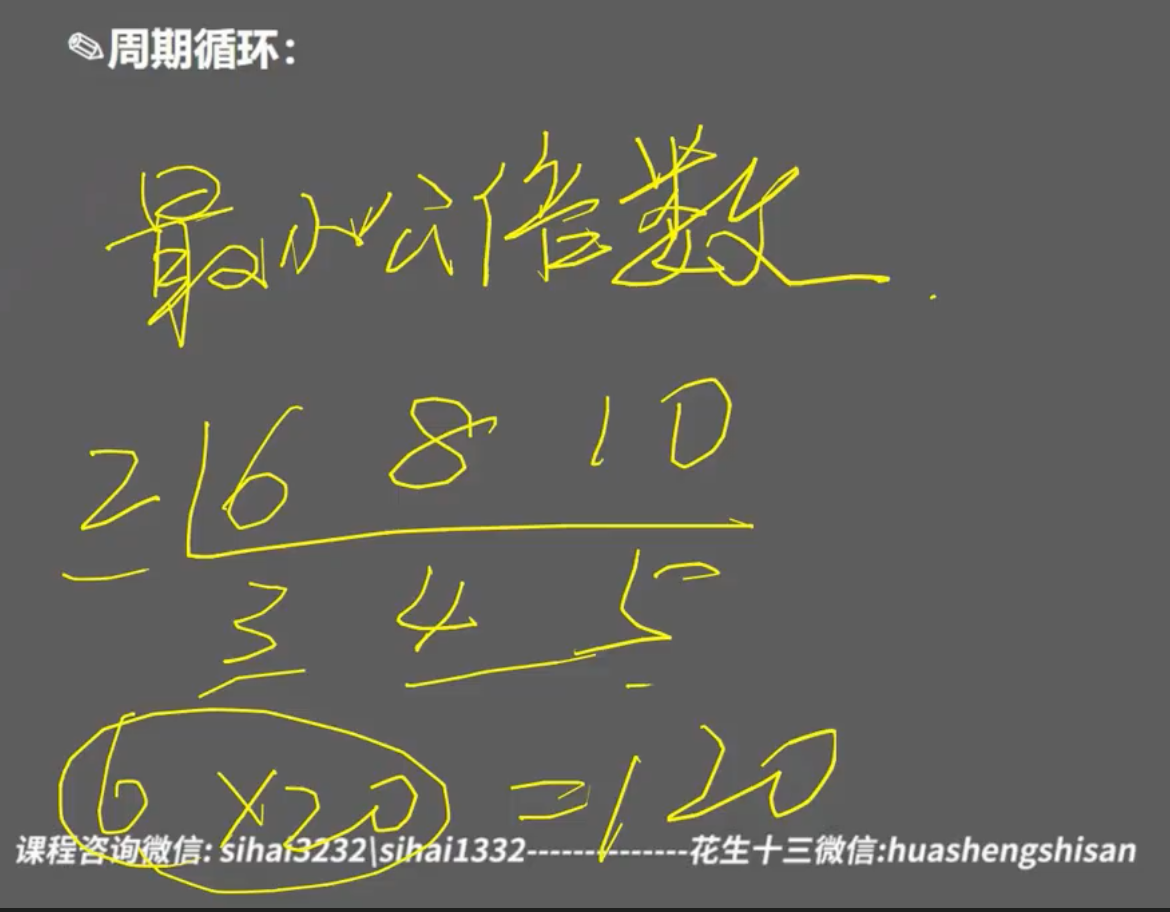 ✎周期循环：
最小公倍数
2 6 8 10
3 4 5
6×20=120
课程咨询微信: sihai3232\sihai1332--------------花生十三微信:huashengshisan